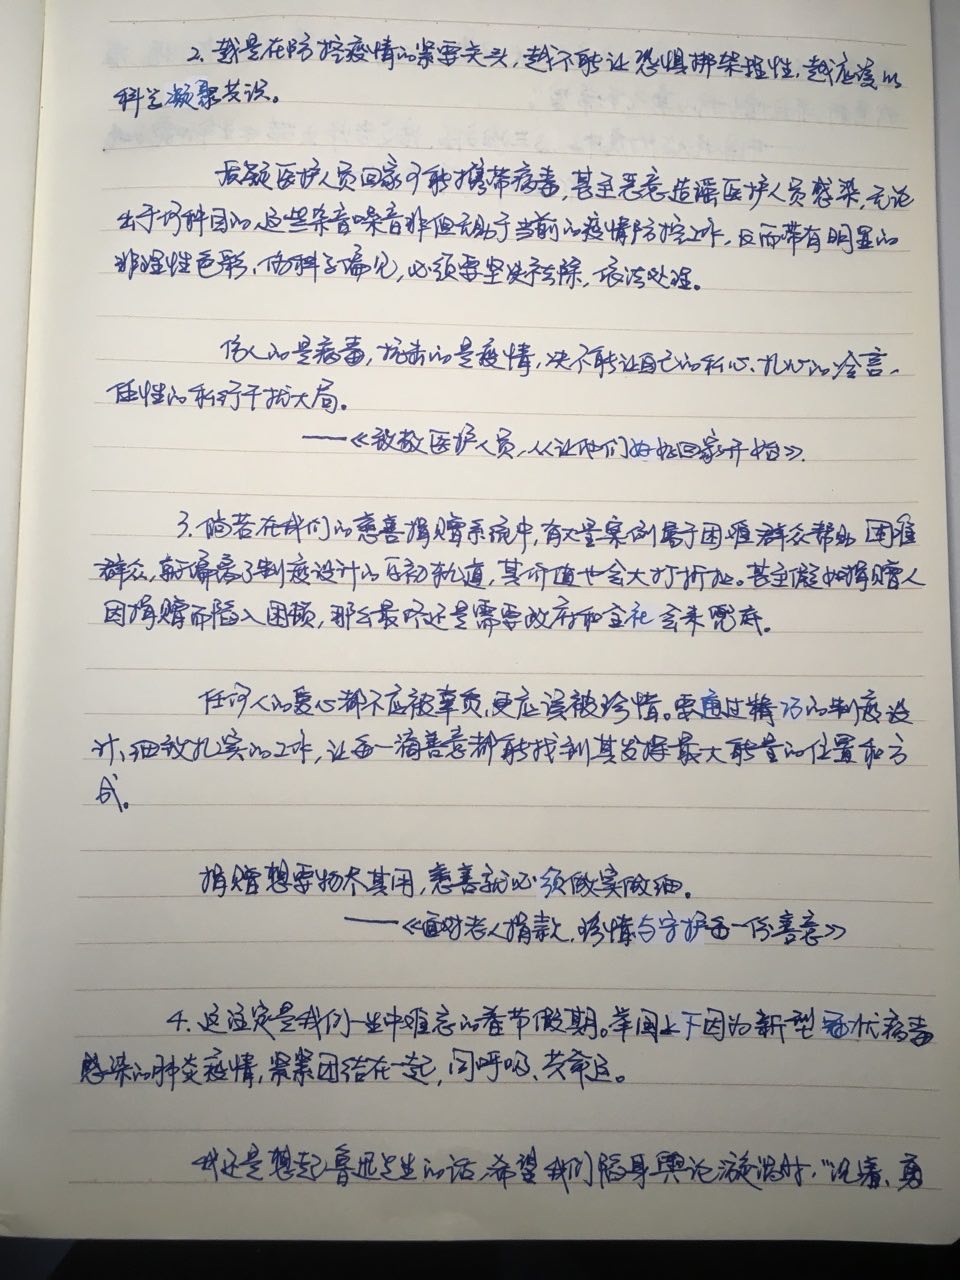 2. 越是在防控疫情的紧要关头,越不能让恐惧绑架理性,越应该以
科学凝聚共识。
质疑医护人员回家可能携带病毒,甚至恶意造谣医护人员感染,无论
出于何种目的,这些杂音噪音非但无助于当前的疫情防控工作,反而带有明显的
非理性色彩、伪科学偏见,必须要坚决祛除,依法处理。
伤人的是病毒,抗击的是疫情,决不能让自己的私心、扎心的冷言、
任性的私行干扰大局。
——《致敬医护人员,从让他们好好回家开始》.
3. 倘若在我们的慈善捐赠系统中,有大量案例属于困难群众帮助困难
群众,就偏离了制度设计的原初轨道,其价值也会大打折扣。甚至假如捐赠人
因捐赠而陷入困顿,那么最终还是需要政府和全社会来兜底。
任何人的爱心都不应被辜负,更应该被珍惜。要通过精巧的制度设
计、细致扎实的工作,让每一滴善意都能找到其发挥最大能量的位置和方
式。
捐赠想要物尽其用,慈善就必须做实做细。
——《面对老人捐款,珍惜与守护每一份善意》
4. 这注定是我们一生中难忘的春节假期。举国上下因为新型冠状病毒
感染的肺炎疫情,紧紧团结在一起,同呼吸、共命运。
我还是想起鲁迅先生的话,希望我们陷身舆论漩涡时,“沉着、勇